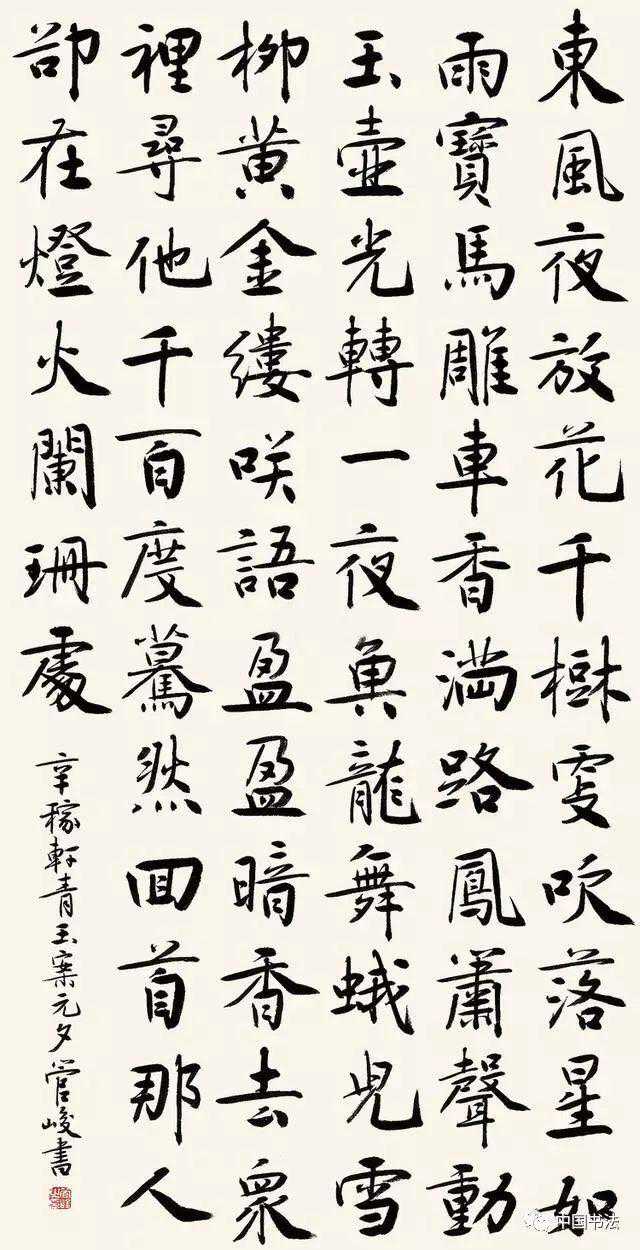 東風夜放花千樹更吹落星如
雨寶馬雕車香滿路鳳蕭聲動
玉壺光轉一夜魚龍舞蛾兒雪
柳黃金縷咲語盈盈暗香去眾
裡尋他千百度驀然回首那人
卻在燈火闌珊處
辛稼軒青玉案元夕管峻書
中国书法